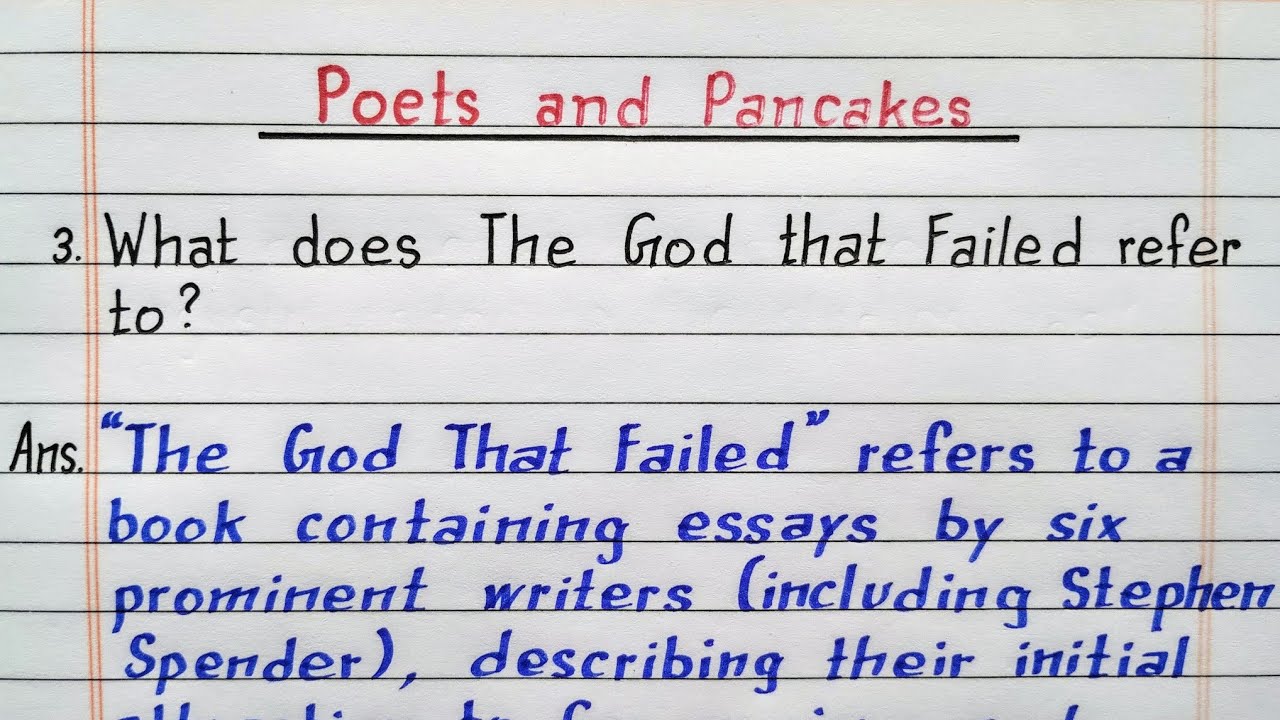 Poets and Pancakes
3. What does The God that Failed refer
to?
Ans. "The God That Failed" refers to a
book containing essays by six
prominent writers (including Stephen
Spender), describing their initial